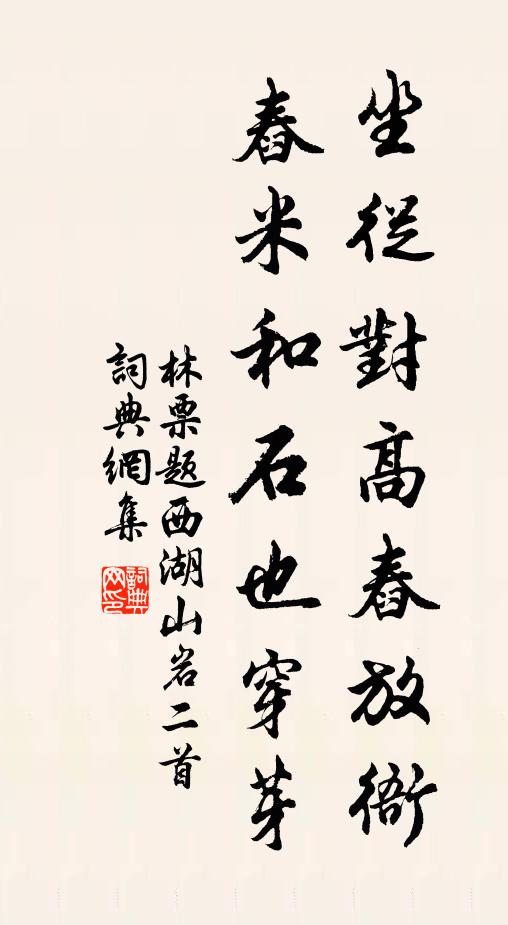 坐從對高舂放衙
舂米和石也穿芽
林栗題西湖山岩二首
詞典網集
詞典
网印